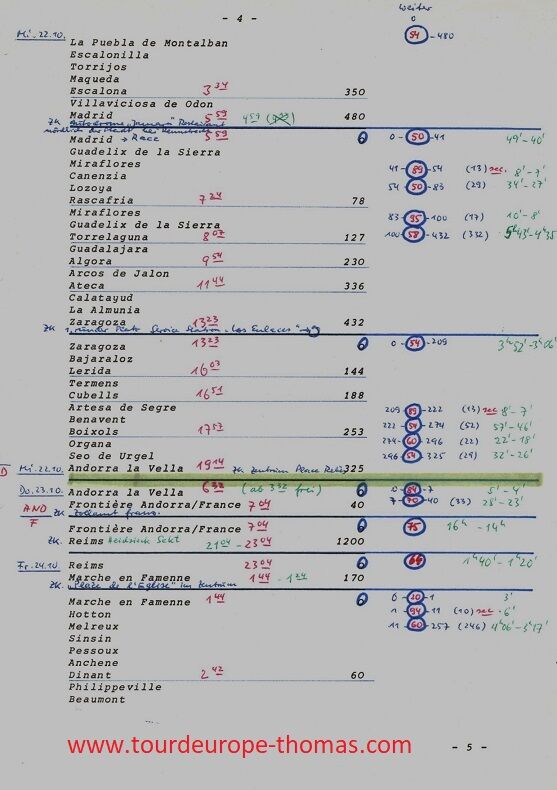 - 4 -
weiter
Mi. 22.10. La Puebla de Montalban 0 54 - 480
Escalonilla
Torrijos
Maqueda
Escalona 3 34 350
Villaviciosa de Odon
Madrid 5 59 480
ZK
Madrid → Race 5 59 0 0 - 50 - 41 49' - 40'
Guadelix de la Sierra
Miraflores 41 - 89 - 54 (13) sec. 8' - 7'
Canenzia
Lozoya 54 - 50 - 83 (29) 34' - 27'
Rascafria 7 24 78
Miraflores 83 - 95 - 100 (17) 10' - 8'
Guadelix de la Sierra
Torrelaguna 8 07 127 100 - 58 - 432 (332)
Guadalajara
Algora 9 54 230
Arcos de Jalon
Ateca 11 44 336
Calatayud
La Almunia
Zaragoza 13 23 432
ZK Service Station "Los Enlaces"
Zaragoza 13 23 0 0 - 54 - 209 3h 52' - 3h 06'
Bajaraloz
Lerida 16 03 144
Termens
Cubells 16 51 188
Artesa de Segre 209 - 89 - 222 (13) sec 8' - 7'
Benavent 222 - 54 - 274 (52) 57' - 46'
Boixols 17 57 253
Organa 274 - 60 - 296 (22) 22' - 18'
Seo de Urgel 296 - 54 - 325 (29) 32' - 26'
D Mi. 22.10. Andorra la Vella 19 14 ZK Zentrum Place 325
Do. 23.10. Andorra la Vella 6 32 (ab 3 32 frei) 0 0 - 84 - 7 5' - 4'
AND Frontière Andorra/France 7 04 40 7 - 70 - 40 (33) 28' - 23'
F ZK Zollamt franz.
Frontière Andorra/France 7 04 0 75 16h - 14h
ZK. Reims Heidsieck Sekt 21 04 - 23 04 1200
Fr. 24.10. Reims 23 04 0 1h 40' - 1h 20'
Marche en Famenne 1 44 - 1 24 170
ZK. "Place de l'Eglise" im Zentrum
Marche en Famenne 1 44 0 0 - 20 - 1 3'
Hotton 1 - 94 - 11 (10) sec - 6'
Melreux 11 - 60 - 257 (246) 4h 06' - 3h 17'
Sinsin
Pessoux
Anchene
Dinant 2 42 60
Philippeville
Beaumont
www.tourdeurope-thomas.com
- 5 -